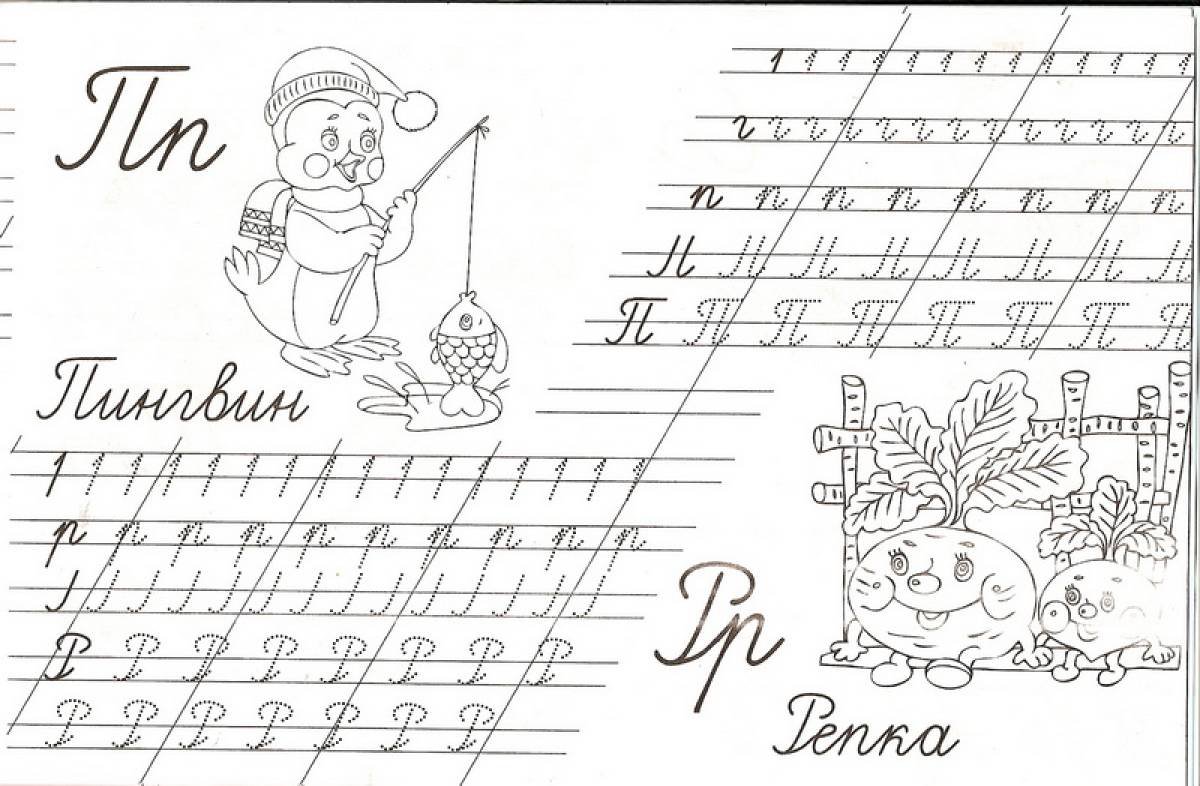 Пп
Пингвин
п п п п п п п п
П П П П П П П П
р р р р р р р р р р
Р Р Р Р Р Р Р Р
Р Р Р Р Р Р Р
Рр
Репка